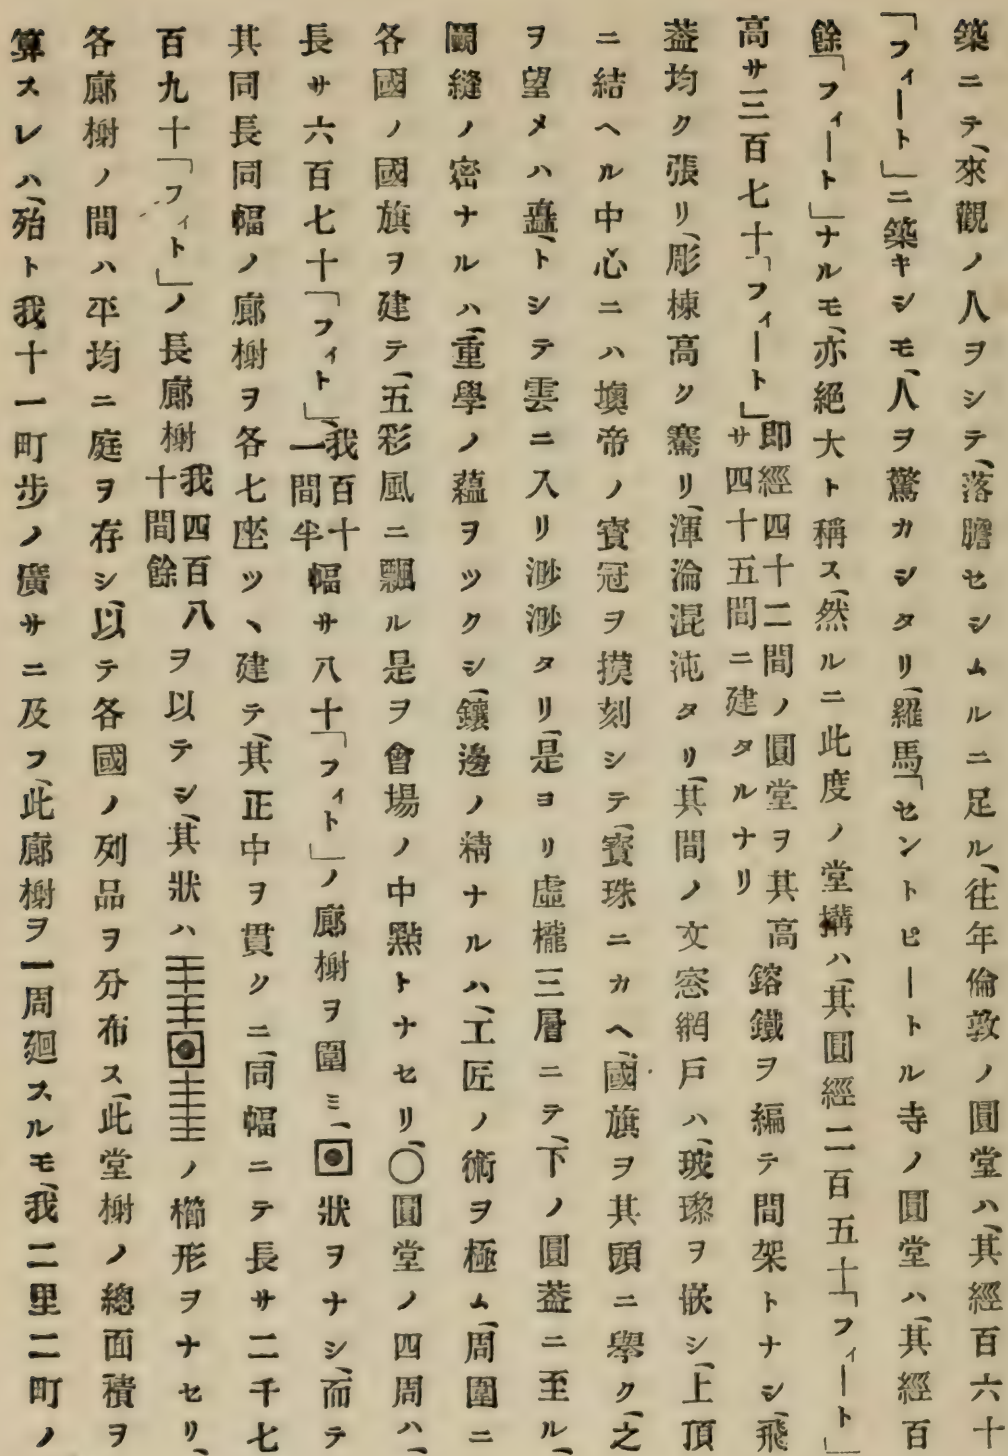 築ニテ、來觀ノ人ヲシテ、落膽セシムルニ足ル、往年倫敦ノ圓堂ハ、其經百六十
「フィート」ニ築キシモ、人ヲ驚カシタリ、羅馬「セントピートル寺ノ圓堂ハ、其經百
餘「フィート」ナルモ、亦絕大ト稱ス、然ルニ此度ノ堂搆ハ、其圓經二百五十「フィート」
高サ三百七十「フィート」即經四十二間ノ圓堂ヲ其高サ四十五間ニ建タルナリ鎔鐵ヲ編テ間架トナシ、飛
葢均ク張リ、彫棟高ク騫リ、渾淪混沌タリ、其間ノ文窓網戸ハ、玻瓈ヲ嵌シ、上頂
ニ結ヘル中心ニハ墺帝ノ寳冠ヲ摸刻シテ、寳珠ニカヘ、國旗ヲ其頭ニ擧ク、之
ヲ望メハ矗トシテ雲ニ入リ渺渺タリ、是ヨリ虛櫳三層ニテ、下ノ圓葢ニ至ル、
鬭縫ノ密ナルハ、重學ノ蘊ヲツクシ、鑲邊ノ精ナルハ、工匠ノ術ヲ極ム、周圍ニ
各國ノ國旗ヲ建テ、五彩風ニ飄ル是ヲ會場ノ中點トナセリ、〇圓堂ノ四周ハ、
長サ六百七十「フィト」我百十一間半幅サ八十「フィト」ノ廊榭ヲ圍ミ、狀ヲナシ、而テ
其同長同幅ノ廊榭ヲ各七座ツヽ建テ、其正中ヲ貫クニ、同幅ニテ長サ二千七
百九十「フィト」ノ長廊榭我四百八十間餘ヲ以テシ、其狀ハノ櫛形ヲナセリ、
各廊榭ノ間ハ平均ニ庭ヲ存シ、以テ各國ノ列品ヲ分布ス、此堂榭ノ總面積ヲ
算スレハ、殆ト我十一町步ノ廣サニ及フ、此廊榭ヲ一周廻スルモ、我二里二町ノ